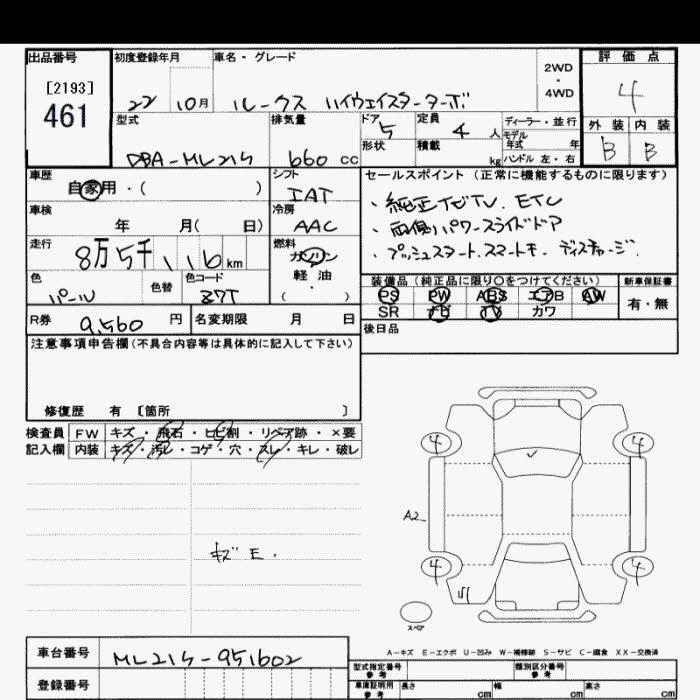 出品番号
[2193]
461
初度登録年月
22 10月
車名・グレード
ルークス ハイウェイスターターボ
2WD
・
4WD
評価点
4
外装 内装
B B
型式
DBA-ML21S
排気量
660 cc
ドア
5
形状
定員
4 人
積載
kg
ディーラー・並行
モデル
年式 年
ハンドル 左・右
車歴
自家用・( )
シフト
IAT
車検
年 月( 日)
冷房
AAC
走行
8万5千 116 km
燃料
ガソリン
軽油
・
( )
色
パール
色替
色コード
Z7T
セールスポイント (正常に機能するものに限ります)
・純正ナビTV. ETC
・両側パワースライドドア
・プッシュスタート.スマートキー ディスチャージ.
装備品 (純正品に限り○をつけてください)
PS PW ABS エアB AW
SR ナビ TV カワ
新車保証書
有・無
後日品
R券
9,560 円
名変期限 月 日
注意事項申告欄(不具合内容等は具体的に記入して下さい)
修復歴 有 [箇所 ]
検査員
記入欄
FW キズ・飛石・ヒビ割・リペア跡・×要
内装 キズ・汚レ・コゲ・穴・スレ・キレ・破レ
キズ E.
4 4
A2
4 4
スペア
A-キズ E-エクボ U-凹み W-補修跡 S-サビ C-腐食 XX-交換済
車台番号
ML21S-951602
登録番号
型式指定番号
参考
類別区分番号
参考
車庫証明用
参考
長さ cm 幅 cm 高さ cm